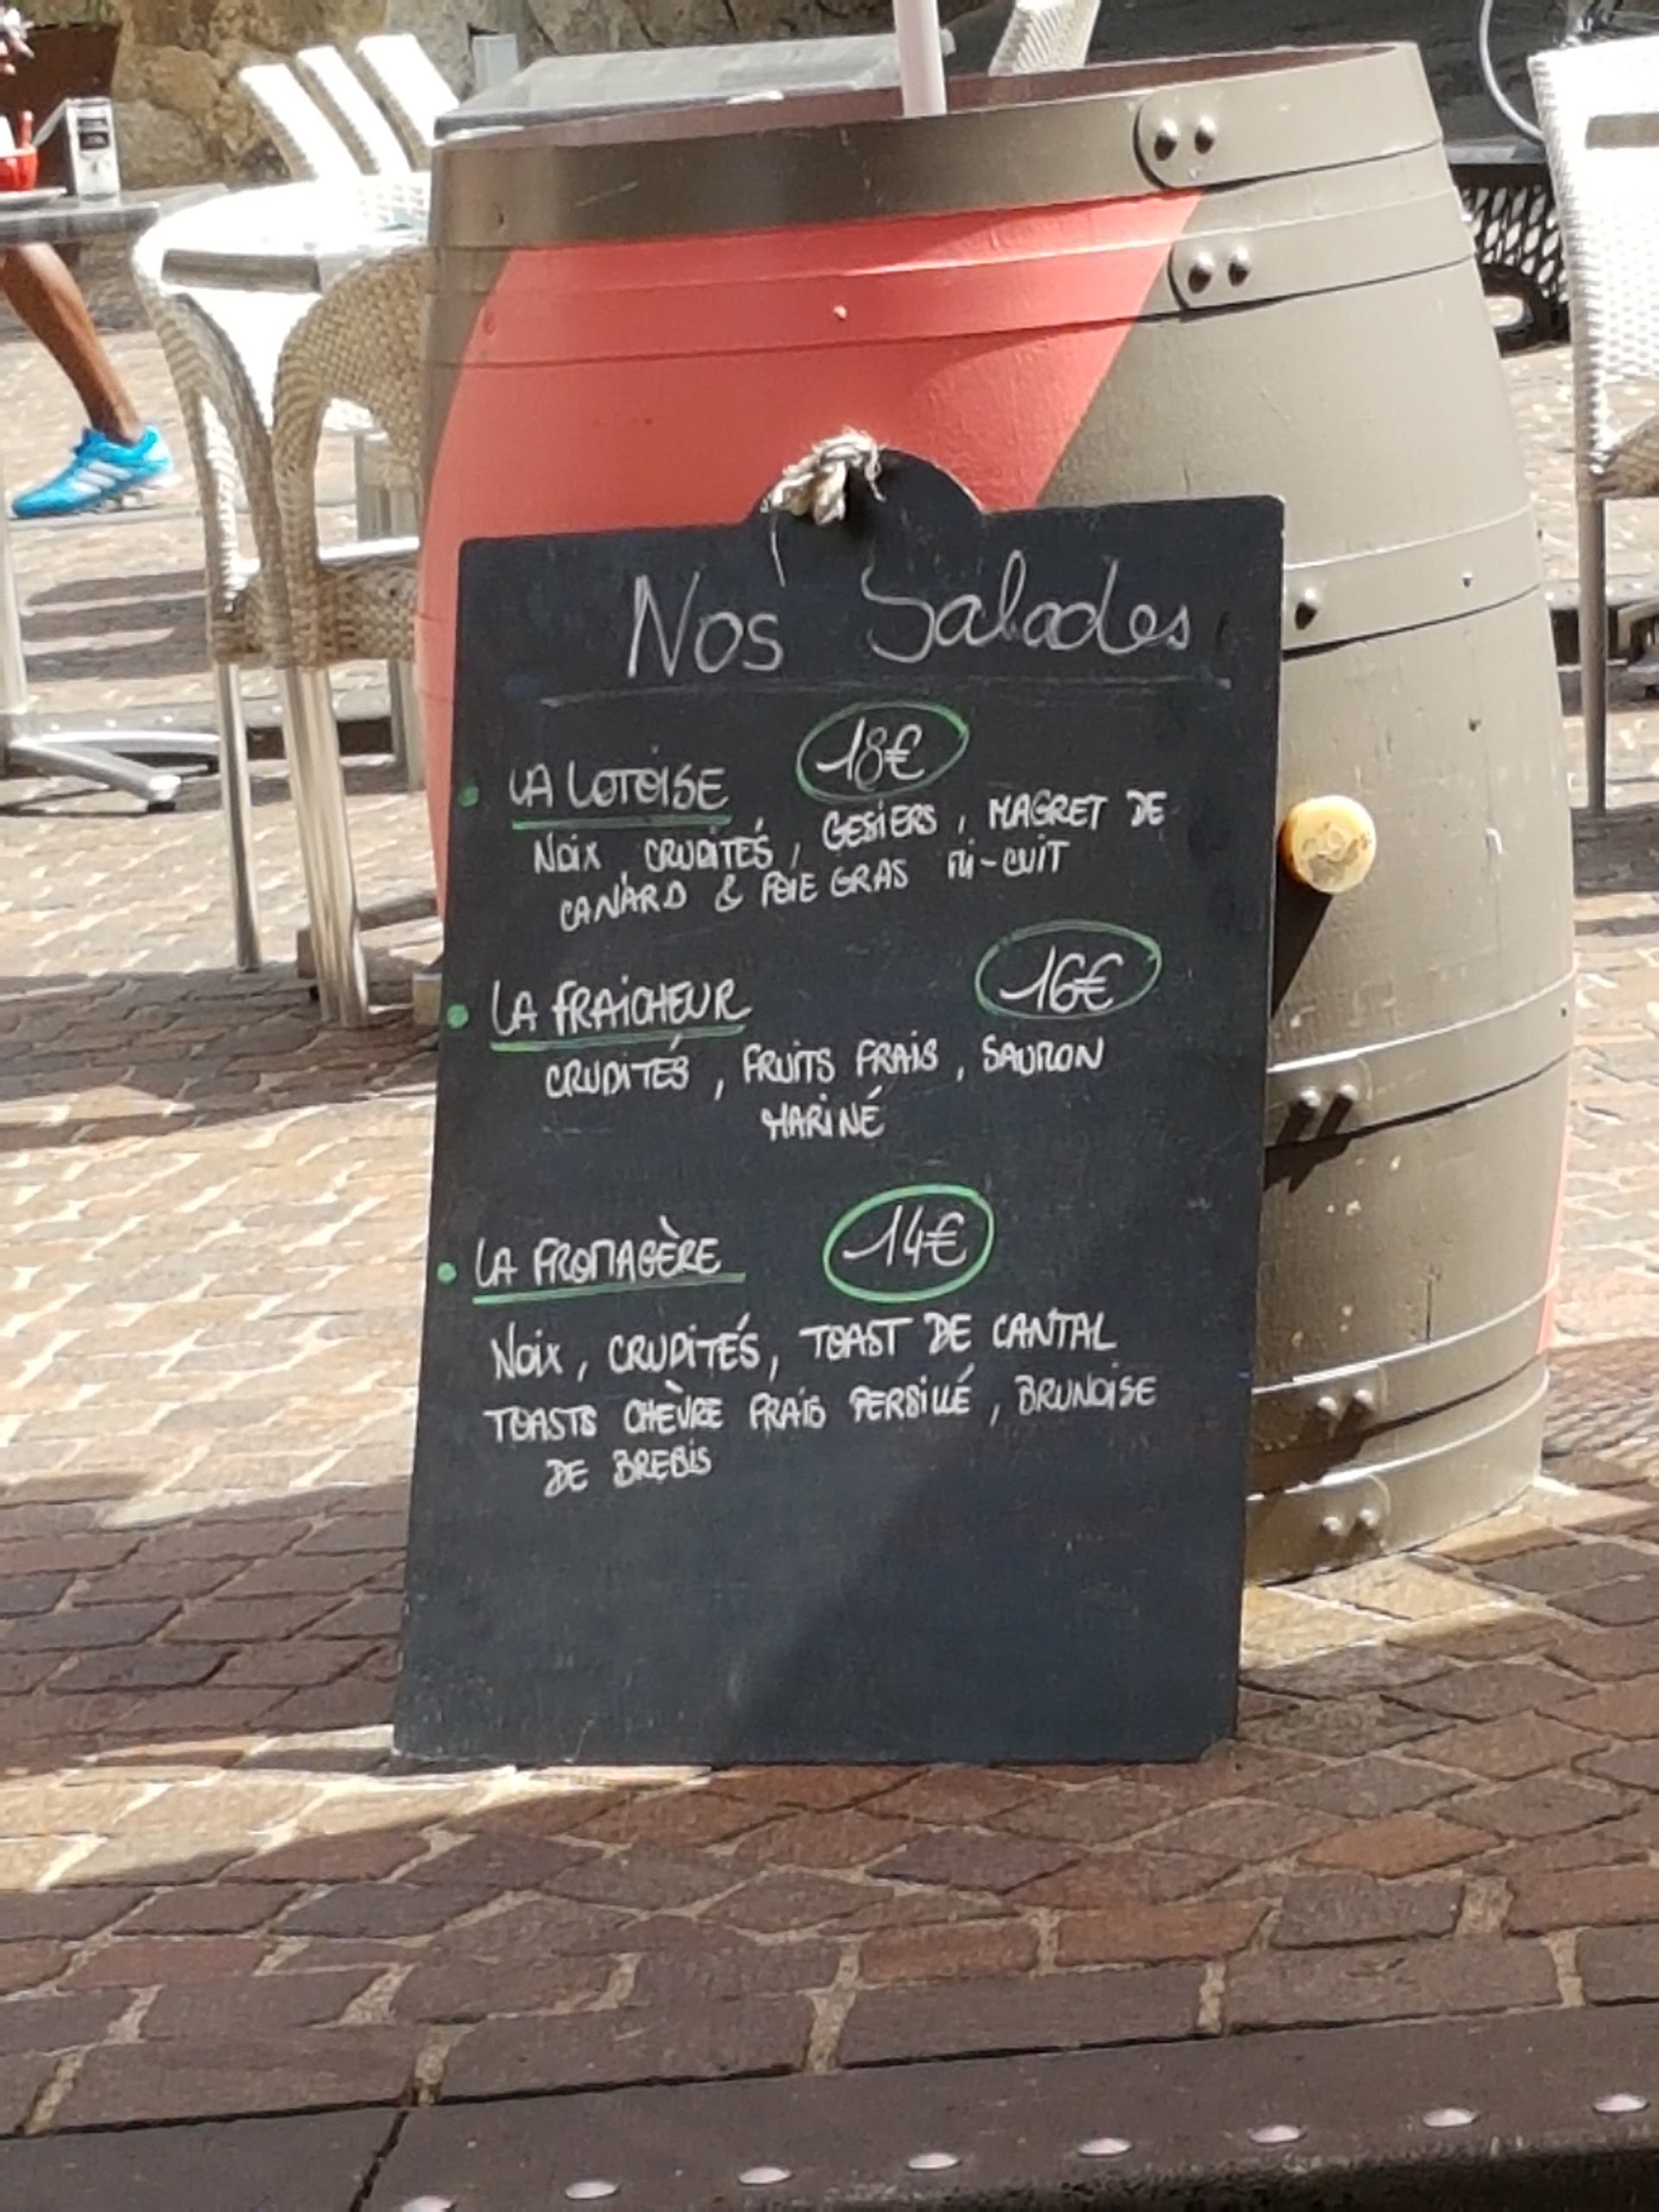 Nos Salades
LA LOTOISE 18€
NOIX, CRUDITÉS, GESIERS, MAGRET DE
CANARD & FOIE GRAS MI-CUIT
LA FRAICHEUR 16€
CRUDITÉS, FRUITS FRAIS, SAUMON
MARINÉ
LA FROMAGÈRE 14€
NOIX, CRUDITÉS, TOAST DE CANTAL
TOASTS CHÈVRE FRAIS PERSILLÉ, BRUNOISE
DE BREBIS